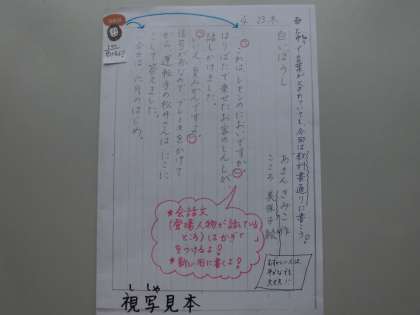 4/23木
白いぼうし
あまんきみこ 作
「これは、レモンのにおいですか。」
ほりばたで乗せたお客のしんしが
話しかけました。
「いいえ、夏みかんですよ。」
信号が赤なので、ブレーキをかけて
から、運転手の松井さんは、にこに
こして答えました。
今日は、六月のはじめ。
★会話文
(登場人物が話している
ところ)はかぎで
をつけるよ!
★新しい行に書くよ!
ししゃ
視写見本